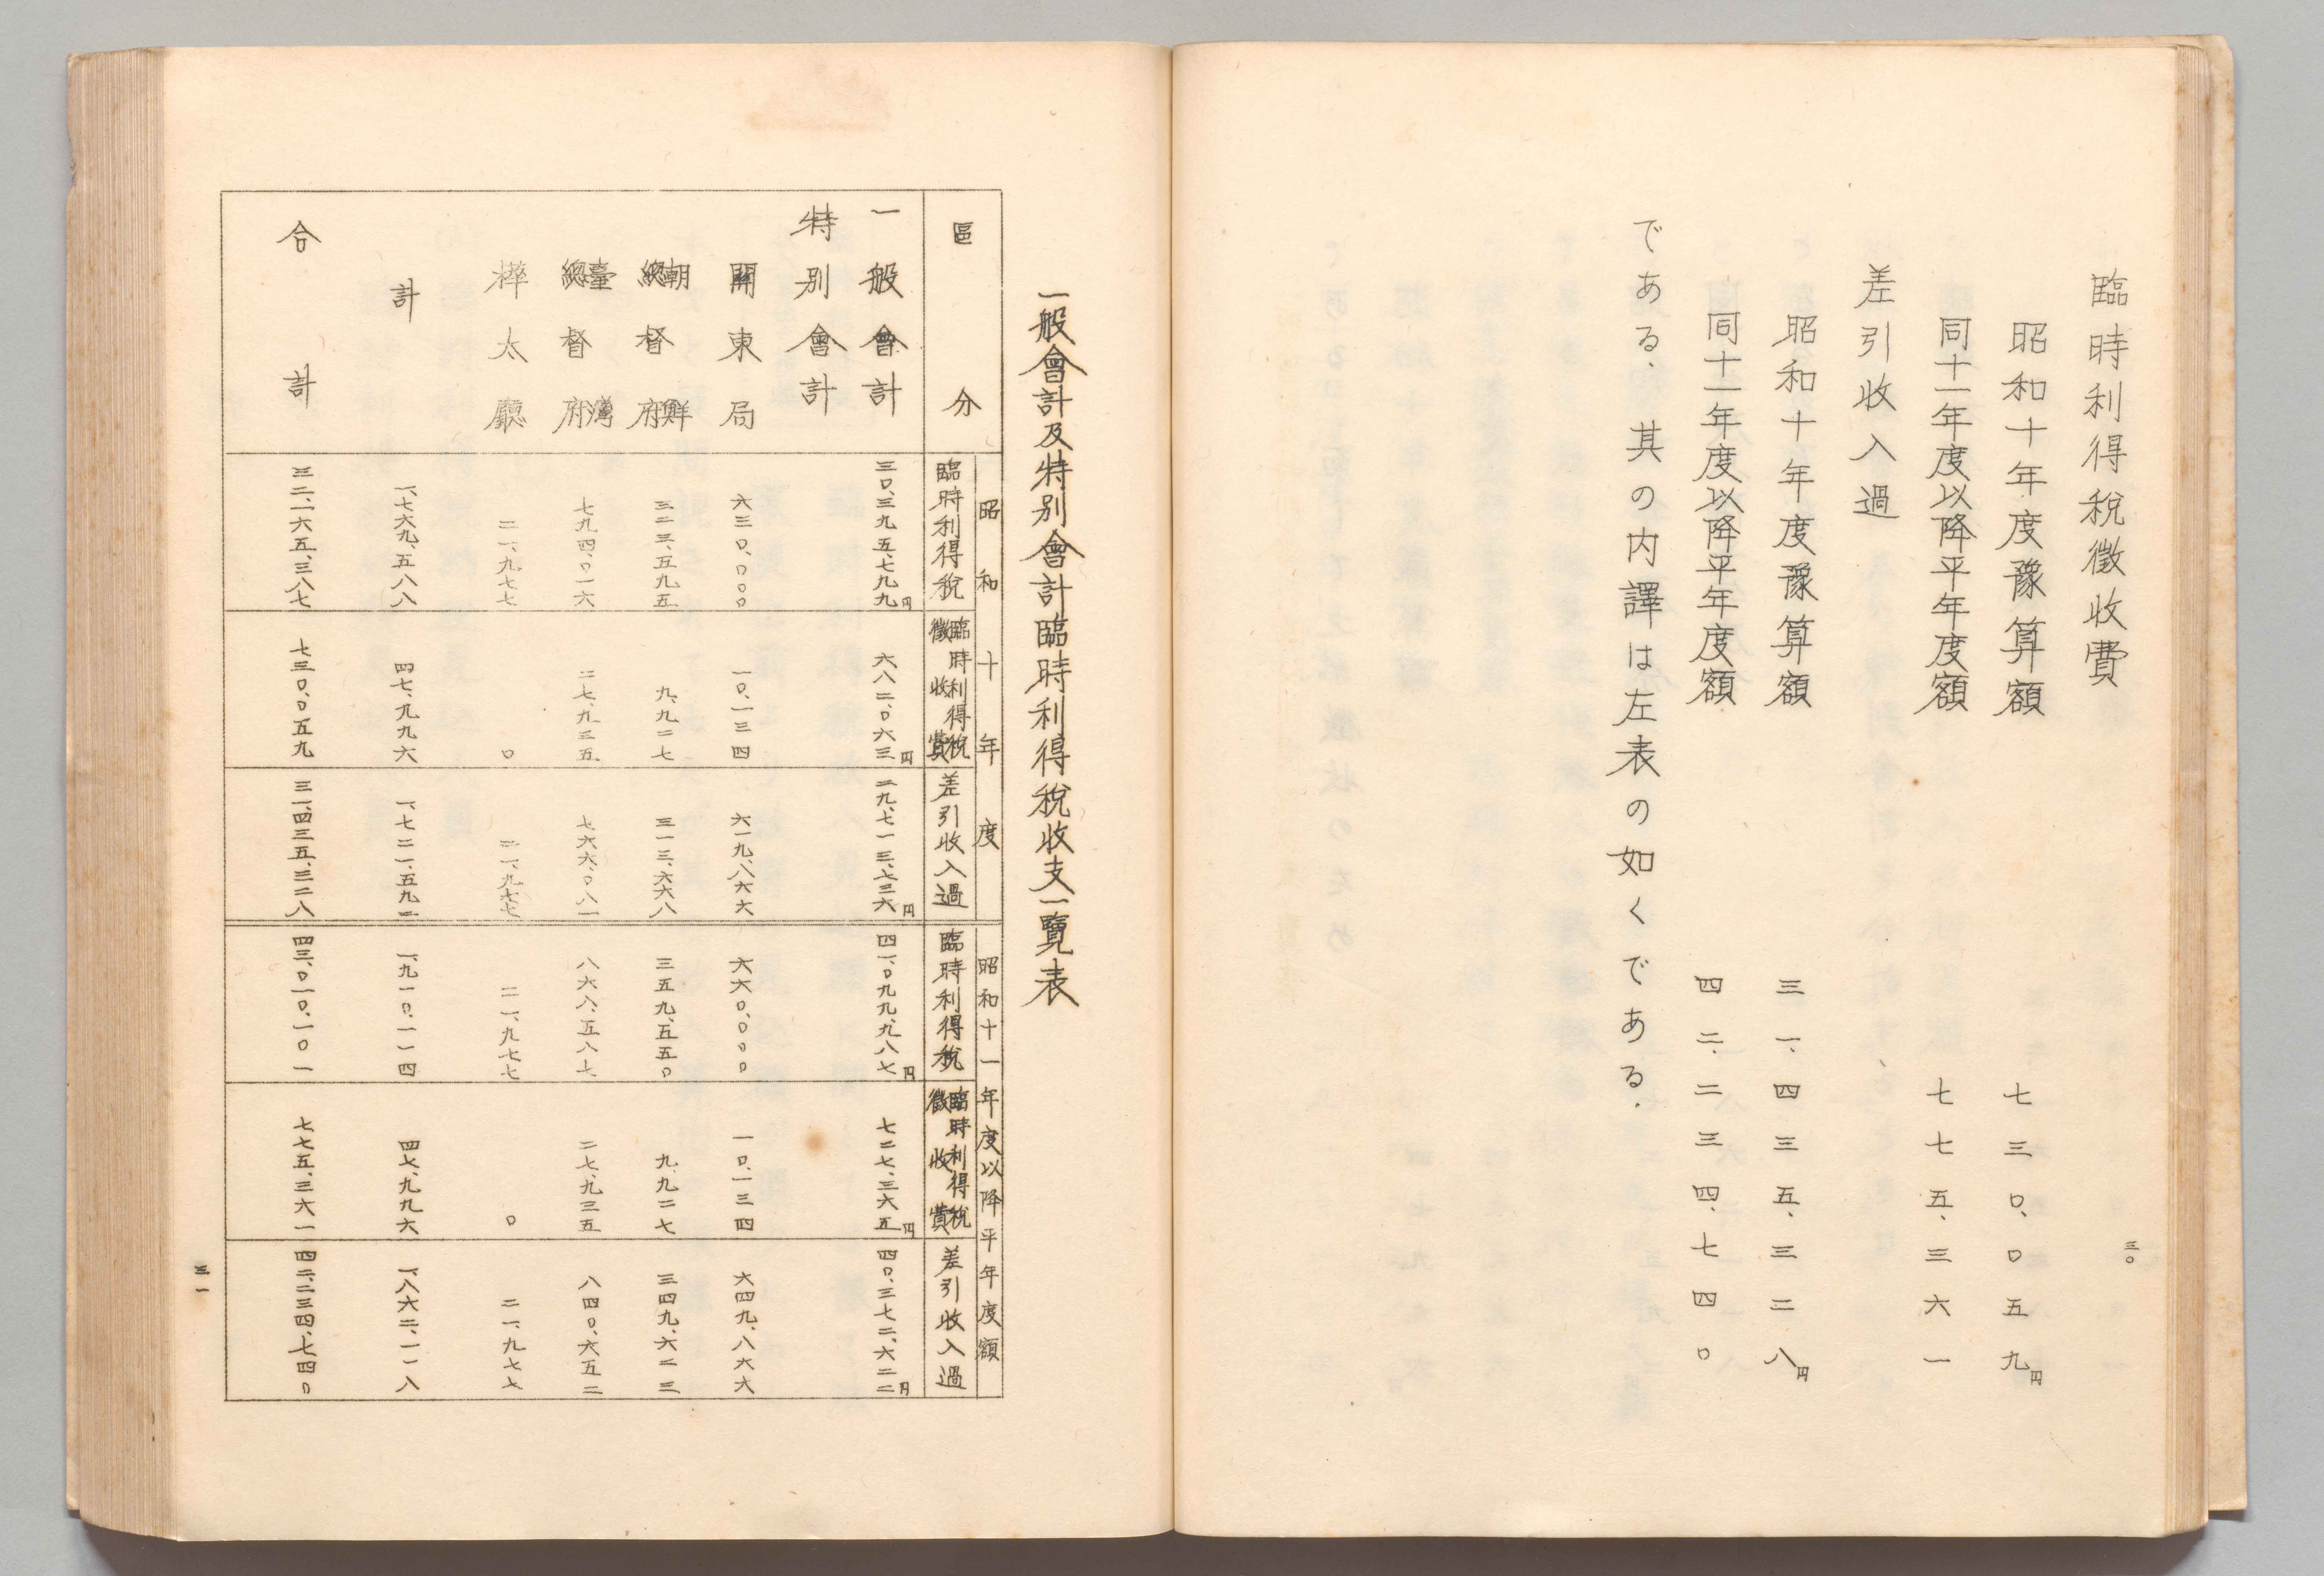 三〇
臨時利得稅徵收費
昭和十年度豫算額 七三〇、〇五九円
同十一年度以降平年度額 七七五、三六一
差引收入過
昭和十年度豫算額 三一、四三五、三二八円
同十一年度以降平年度額 四二、二三四、七四〇
である。其の内譯は左表の如くである。
一般會計及特別會計臨時利得稅收支一覽表
區分 昭和十年度 昭和十一年度以降平年度額
臨時利得稅 臨時利得稅徵收費 差引收入過 臨時利得稅 臨時利得稅徵收費 差引收入過
一般會計 三〇、三九五、七九九円 六八二、〇六三円 二九、七一三、七三六円 四一、〇九九、九八七円 七二七、三六五円 四〇、三七二、六二二円
特別會計
關東局 六三〇、〇〇〇 一〇、一三四 六一九、八六六 六六〇、〇〇〇 一〇、一三四 六四九、八六六
朝鮮總督府 三二三、五九五 九、九二七 三一三、六六八 三五九、五五〇 九、九二七 三四九、六二三
臺灣總督府 七九四、〇一六 二七、九三五 七六六、〇八一 八六八、五八七 二七、九三五 八四〇、六五二
樺太廳 二一、九七七 〇 二一、九七七 二一、九七七 〇 二一、九七七
計 一、七六九、五八八 四七、九九六 一、七二一、五九二 一、九一〇、一一四 四七、九九六 一、八六二、一一八
合計 三二、一六五、三八七 七三〇、〇五九 三一、四三五、三二八 四三、〇一〇、一〇一 七七五、三六一 四二、二三四、七四〇
三一